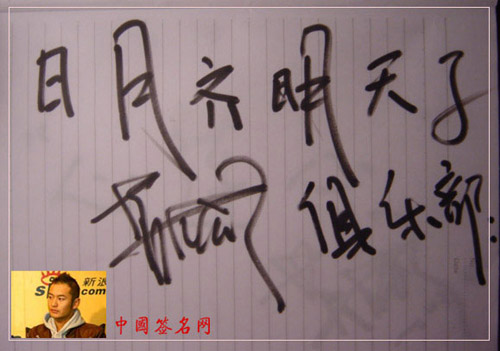 日月齐明天子
俱乐部.
新浪
s .com
中國签名网